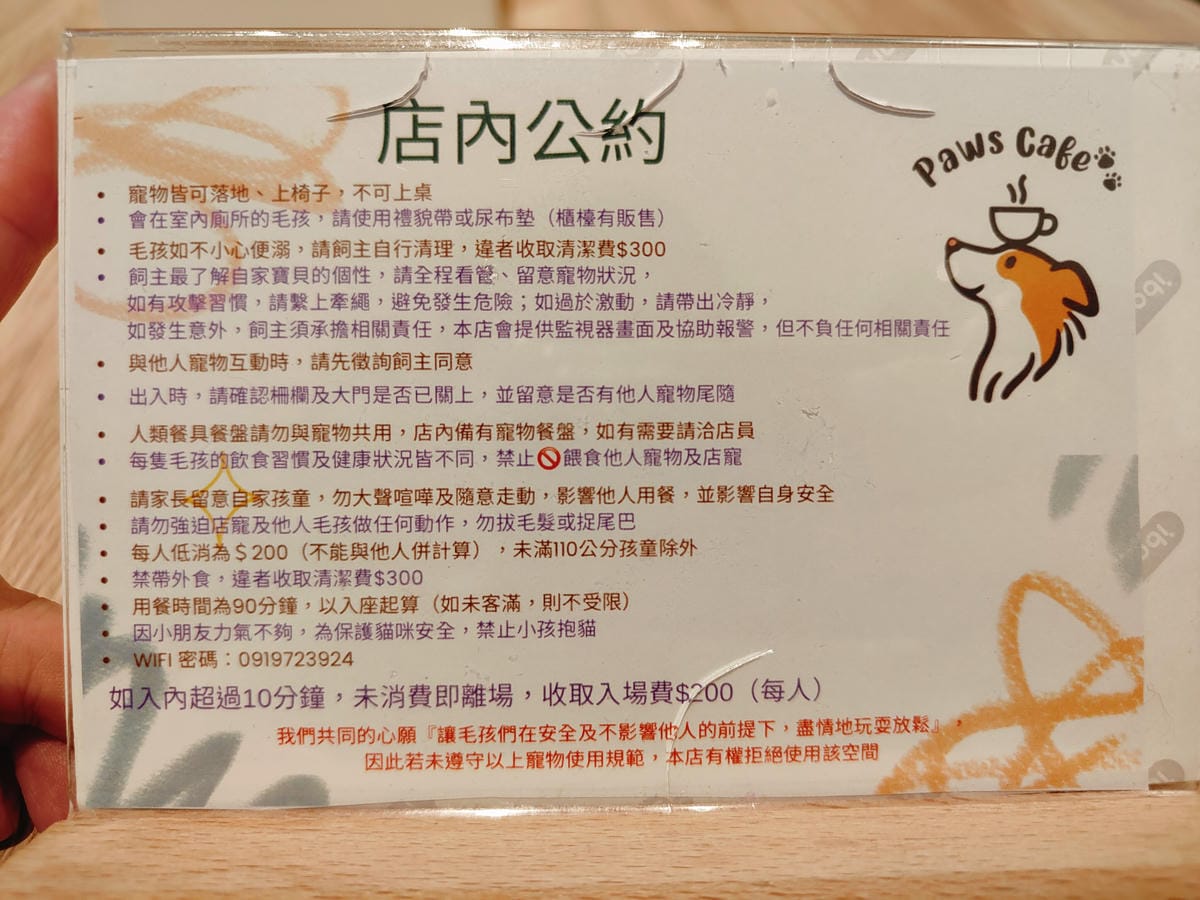 店內公約
Paws Cafe
• 寵物皆可落地、上椅子，不可上桌
• 會在室內廁所的毛孩，請使用禮貌帶或尿布墊（櫃檯有販售）
• 毛孩如不小心便溺，請飼主自行清理，違者收取清潔費$300
• 飼主最了解自家寶貝的個性，請全程看管、留意寵物狀況，
如有攻擊習慣，請繫上牽繩，避免發生危險；如過於激動，請帶出冷靜，
如發生意外，飼主須承擔相關責任，本店會提供監視器畫面及協助報警，但不負任何相關責任
• 與他人寵物互動時，請先徵詢飼主同意
• 出入時，請確認柵欄及大門是否已關上，並留意是否有他人寵物尾隨
• 人類餐具餐盤請勿與寵物共用，店內備有寵物餐盤，如有需要請洽店員
• 每隻毛孩的飲食習慣及健康狀況皆不同，禁止🚫餵食他人寵物及店寵
• 請家長留意自家孩童，勿大聲喧嘩及隨意走動，影響他人用餐，並影響自身安全
• 請勿強迫店寵及他人毛孩做任何動作，勿拔毛髮或捉尾巴
• 每人低消為＄200（不能與他人併計算），未滿110公分孩童除外
• 禁帶外食，違者收取清潔費$300
• 用餐時間為90分鐘，以入座起算（如未客滿，則不受限）
• 因小朋友力氣不夠，為保護貓咪安全，禁止小孩抱貓
• WIFI 密碼：0919723924
如入內超過10分鐘，未消費即離場，收取入場費$200（每人）
我們共同的心願『讓毛孩們在安全及不影響他人的前提下，盡情地玩耍放鬆』，
因此若未遵守以上寵物使用規範，本店有權拒絕使用該空間